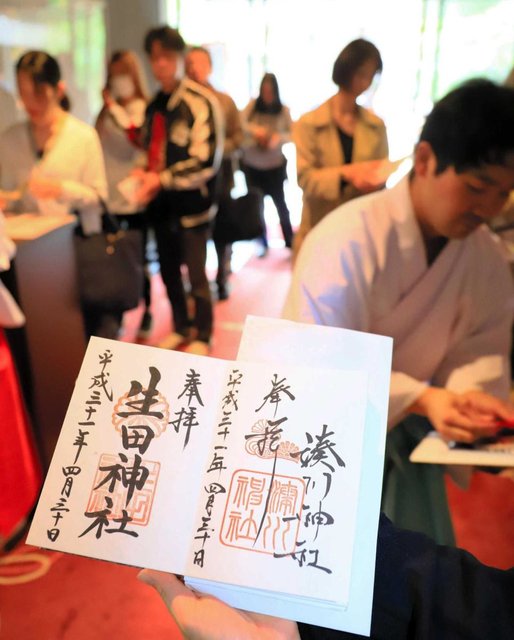 奉拝
湊川神社
湊川神社
平成三十一年四月三十日
奉拝
生田神社
平成三十一年四月三十日